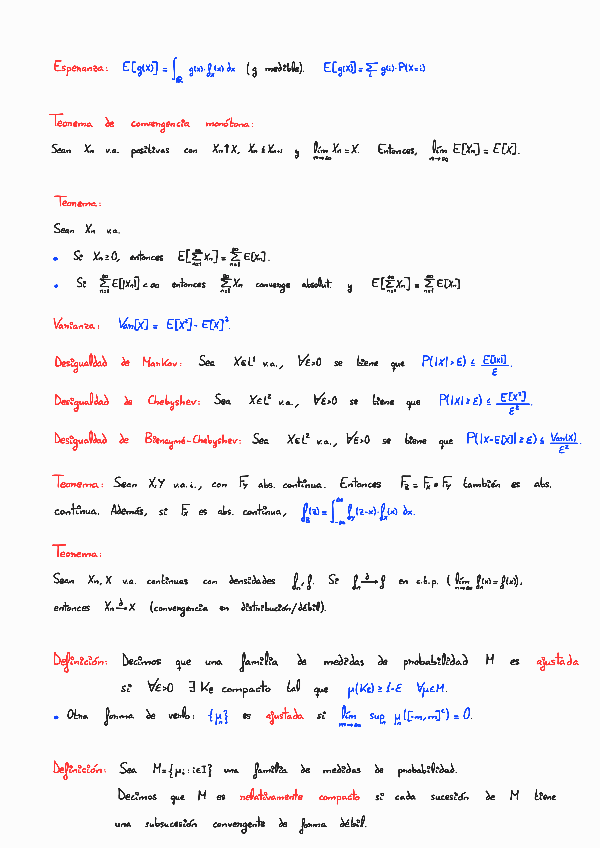 Esperanza: E[g(X)] = ∫_ℝ g(x)·f_X(x) dx (g medible). E[g(X)] = Σ_i g(i)·P(X=i)
Teorema de convergencia monótona:
Sean Xₙ v.a. positivas con Xₙ↑X, Xₙ ≤ Xₙ₊₁ y lím_{n→∞} Xₙ = X. Entonces, lím_{n→∞} E[Xₙ] = E[X].
Teorema:
Sean Xₙ v.a.
• Si Xₙ ≥ 0, entonces E[Σ_{n=1}^∞ Xₙ] = Σ_{n=1}^∞ E[Xₙ].
• Si Σ_{n=1}^∞ E[|Xₙ|] < ∞ entonces Σ_{n=1}^∞ Xₙ converge absolut. y E[Σ_{n=1}^∞ Xₙ] = Σ_{n=1}^∞ E[Xₙ]
Varianza: Var[X] = E[X²] - E[X]².
Desigualdad de Markov: Sea X∈L¹ v.a., ∀ε>0 se tiene que P(|X| > ε) ≤ E[|X|]/ε.
Desigualdad de Chebyshev: Sea X∈L² v.a., ∀ε>0 se tiene que P(|X| ≥ ε) ≤ E[X²]/ε².
Desigualdad de Bienaymé-Chebyshev: Sea X∈L² v.a., ∀ε>0 se tiene que P(|X-E[X]| ≥ ε) ≤ Var(X)/ε².
Teorema: Sean X,Y v.a.i., con F_Y abs. continua. Entonces F_Z = F_X * F_Y también es abs.
continua. Además, si F_X es abs. continua, f_Z(z) = ∫_{-∞}^{∞} f_Y(z-x)·f_X(x) dx.
Teorema:
Sean Xₙ, X v.a. continuas con densidades fₙ, f. Si fₙ → f en c.t.p. (lím_{n→∞} fₙ(x) = f(x)),
entonces Xₙ →^d X (convergencia en distribución/débil).
Definición: Decimos que una familia de medidas de probabilidad M es ajustada
si ∀ε>0 ∃ K_ε compacto tal que μ(K_ε) ≥ 1-ε ∀μ∈M.
• Otra forma de verlo: {μₙ} es ajustada si lím_{m→∞} sup_n μₙ([-m,m]^c) = 0.
Definición: Sea M = {μᵢ : i∈I} una familia de medidas de probabilidad.
Decimos que M es relativamente compacto si cada sucesión de M tiene
una subsucesión convergente de forma débil.